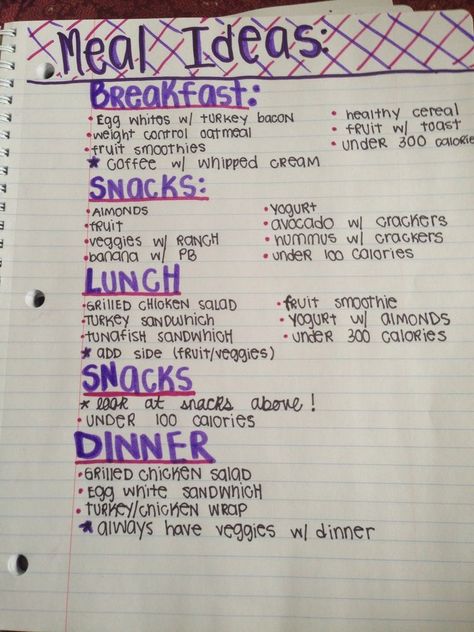 Meal Ideas:
Breakfast:
• Egg whites w/ turkey bacon
• weight control oatmeal
• fruit smoothies
★ coffee w/ whipped cream
• healthy cereal
• fruit w/ toast
• under 300 calorie
SNACKS:
• ALMONDS
• fruit
• veggies w/ RANCH
• banana w/ PB
• YOGURT
• avocado w/ crackers
• hummus w/ crackers
• under 100 calories
LUNCH
• GRILLED CHICKEN SALAD
• TURKEY SANDWHICH
• TUNAFISH SANDWHICH
★ ADD SIDE (fruit/veggies)
• fruit smoothie
• YOGURT w/ ALMONDS
• under 300 calories
SNACKS
★ look at snacks above!
• UNDER 100 CALORIES
DINNER
• GRILLED CHICKEN SALAD
• EGG WHITE SANDWHICH
• TURKEY/CHICKEN WRAP
★ always have veggies w/ dinner